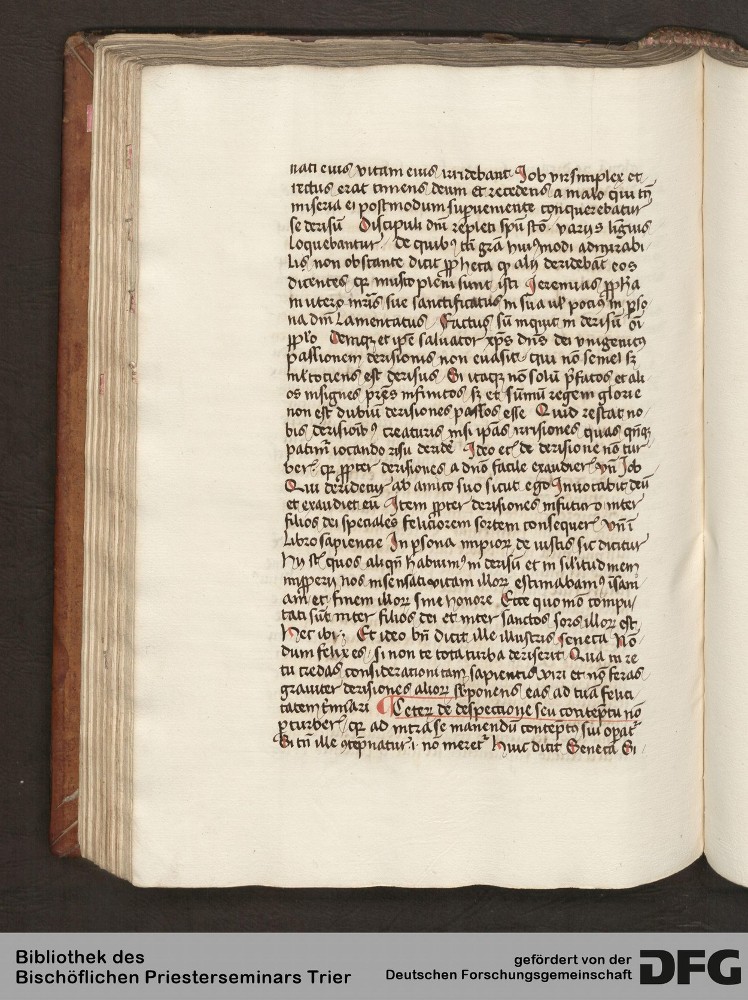 nati eius vitam eius irridebant Job vir simplex et
rectus erat timens deum et recedens a malo qui tn̄
miseria ei postmodum superueniente conquerebatur
se derisū Discipuli dnī repleti spū scō varijs līguis
loquebantur De quibus tn̄ grā huiusmodi admirabi
lis non obstante dicit ꝓpheta ꝙ alij deridebāt eos
dicentes ꝙ musto pleni sunt isti Jeremias ꝓpha
in utero mr̄is sue sanctificatus in sua ul̄ pocius in ꝑso
na dnī Lamentatus Factus sū inquit in derisū oī
ꝓplo Deniqꝫ et ip̄e saluator xp̄s dn̄s dei vnigenitus
passionem derisionis non euasit qui non semel sꝫ
ml̄tociens est derisus Si itaqꝫ nō solū p̄fatos et ali
os insignes pr̄es infinitos sꝫ et sūmū regem glorie
non est dubiū derisiones passos esse Quid restat no
bis derisoribꝰ creaturis nisi ip̄as irrisiones quas
patimr̄ iocando risu deridē Ideo et de derisione nō tur
ber ꝙ ꝓpter derisiones a dn̄o facile exaudier vn̄ Job
Qui deridetur ab amico suo sicut ego Inuocabit deū
et exaudiet eū Item ꝓpter derisiones in futuro inter
filios dei speciales feliciorem sortem consequer vn̄ ī
Libro sapiencie In ꝑsona impioꝝ de iustis sic dicitur
Hij st̄ quos aliqn̄ habuimꝰ in derisū et in sil̓itudinem
improperij nos insensati vitam illoꝝ estimabamꝰ īsani
am et finem illoꝝ sine honore Ecce quomō compu
tati sūt inter filios dei et inter sanctos sors illoꝝ est
Hec ibi Et ideo bn̄ dicit ille illustris seneca Nō
dum felix es si non te tota turba deriserit Qua in re
tu credas considerationi tam sapientis viri et nō feras
grauiter derisiones alioꝝ s exponens eas ad tuā felici
tatem
Ceteꝝ de despectione seu contēptu nō
ꝑturber ꝙ ad intra se manendū contēptꝰ sui oꝑat
Si tn̄ ille ꝯtēpnatur .i. nō meret Huic dicit Seneca Si
Bibliothek des
Bischöflichen Priesterseminars Trier
gefördert von der
Deutschen Forschungsgemeinschaft
DFG